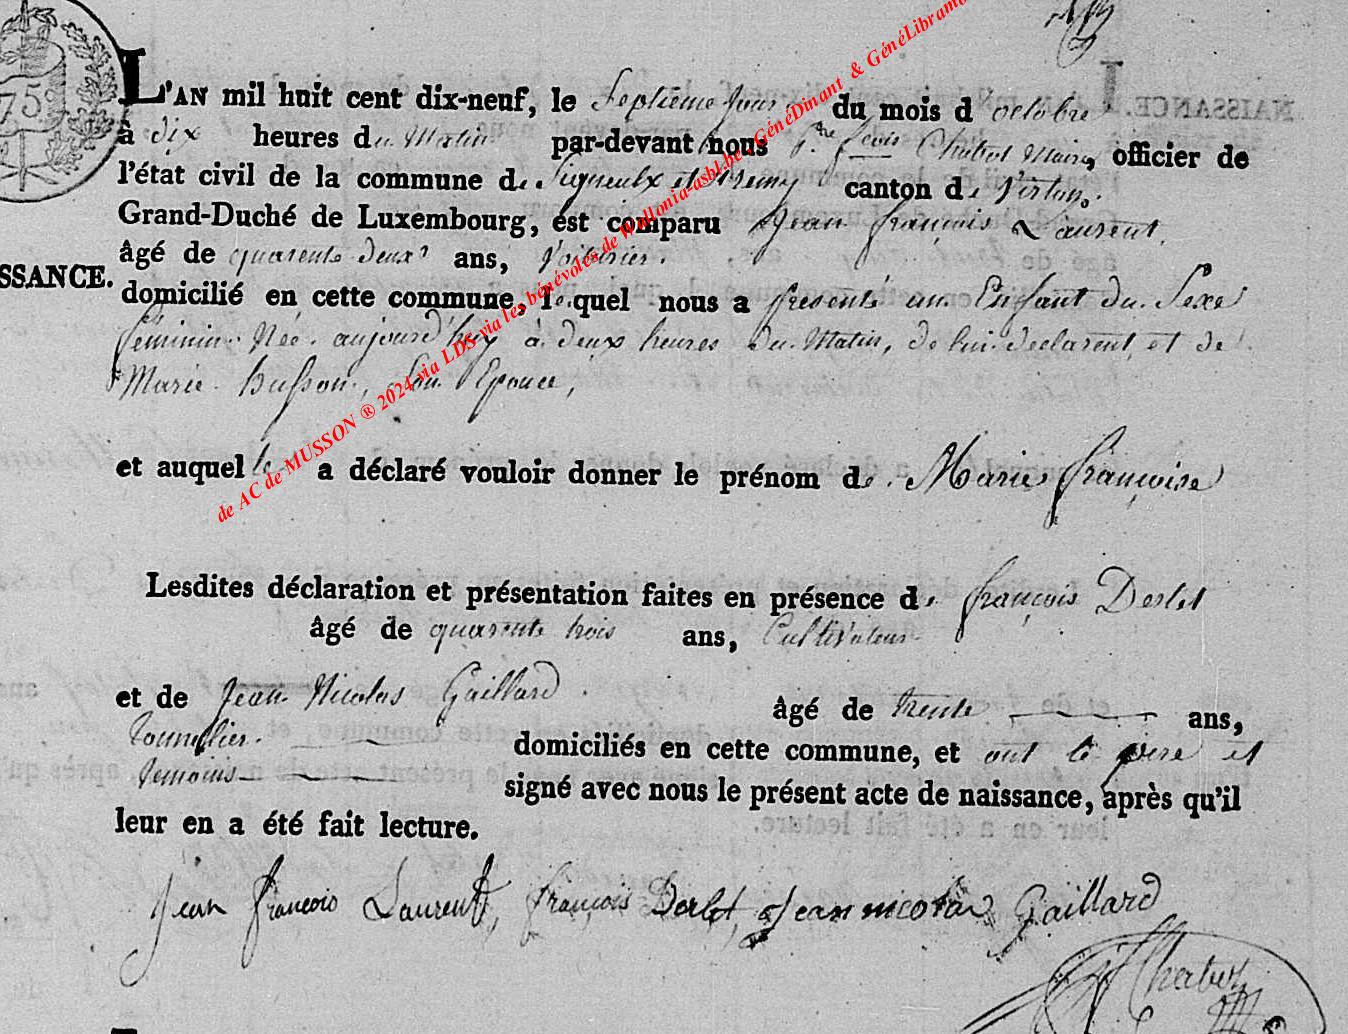 75
L'AN mil huit cent dix-neuf, le Septieme jour du mois d octobre
à dix heures du Matin par-devant nous Louis Chabot Maire, officier de
l'état civil de la commune de Signeulx et St Remy canton de Virton.
Grand-Duché de Luxembourg, est comparu Jean françois Laurent,
âgé de quarente deux ans, Voiturier.
SSANCE.
domicilié en cette commune, lequel nous a presenté un Enfant du Sexe
feminin Née aujourd'huy à deux heures du Matin, de lui declarent et de
Marie husson, son Epouce,
et auquel le a déclaré vouloir donner le prénom de Marie françoise
Lesdites déclaration et présentation faites en présence de françois Derlet
âgé de quarente trois ans, Cultivateur
et de Jean Nicolas Gaillard âgé de trente ans,
domiciliés en cette commune, et ont le pere et
temoins signé avec nous le présent acte de naissance, après qu'il
leur en a été fait lecture.
Jean francois Laurent, françois Derlet, Jean nicolas Gaillard
de AC de MUSSON ® 2024 via LDS via les bénévoles de Wallonia-asbl.be, GénéDinant & GénéLibramo